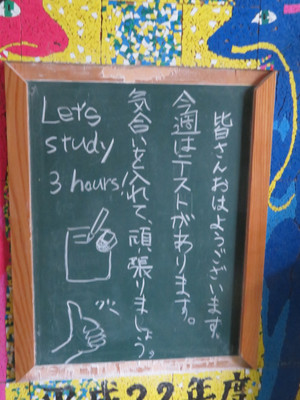 皆さんおはようございます。
今週はテストがあります。
気合いを入れて、頑張りましょう。
Let's
study
3 hours!!
平成22年度